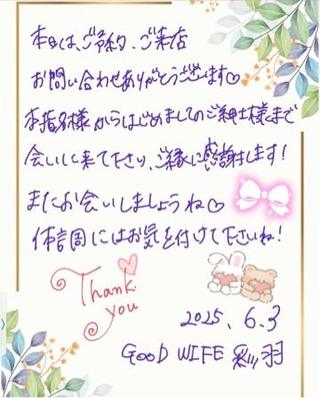 本日は、ご予約、ご来店
お問い合わせありがとうございます♡
本指名様からはじめましてのご紳士様まで
会いに来て下さり、ご縁に感謝します!
またお会いしましょうね♡
体調にはお気を付けて下さいね!
Thank
you
2025.6.3
GOOD WIFE 彩羽